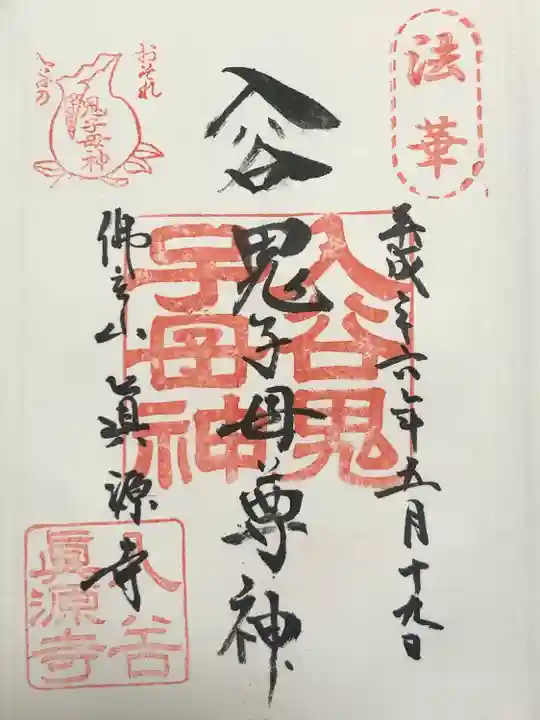 法華
平成二六年五月十九日
入谷
鬼子母尊神
入谷鬼
子母神
おそれ
入谷の
鬼子母神
佛立山 眞源寺
入谷
眞源寺